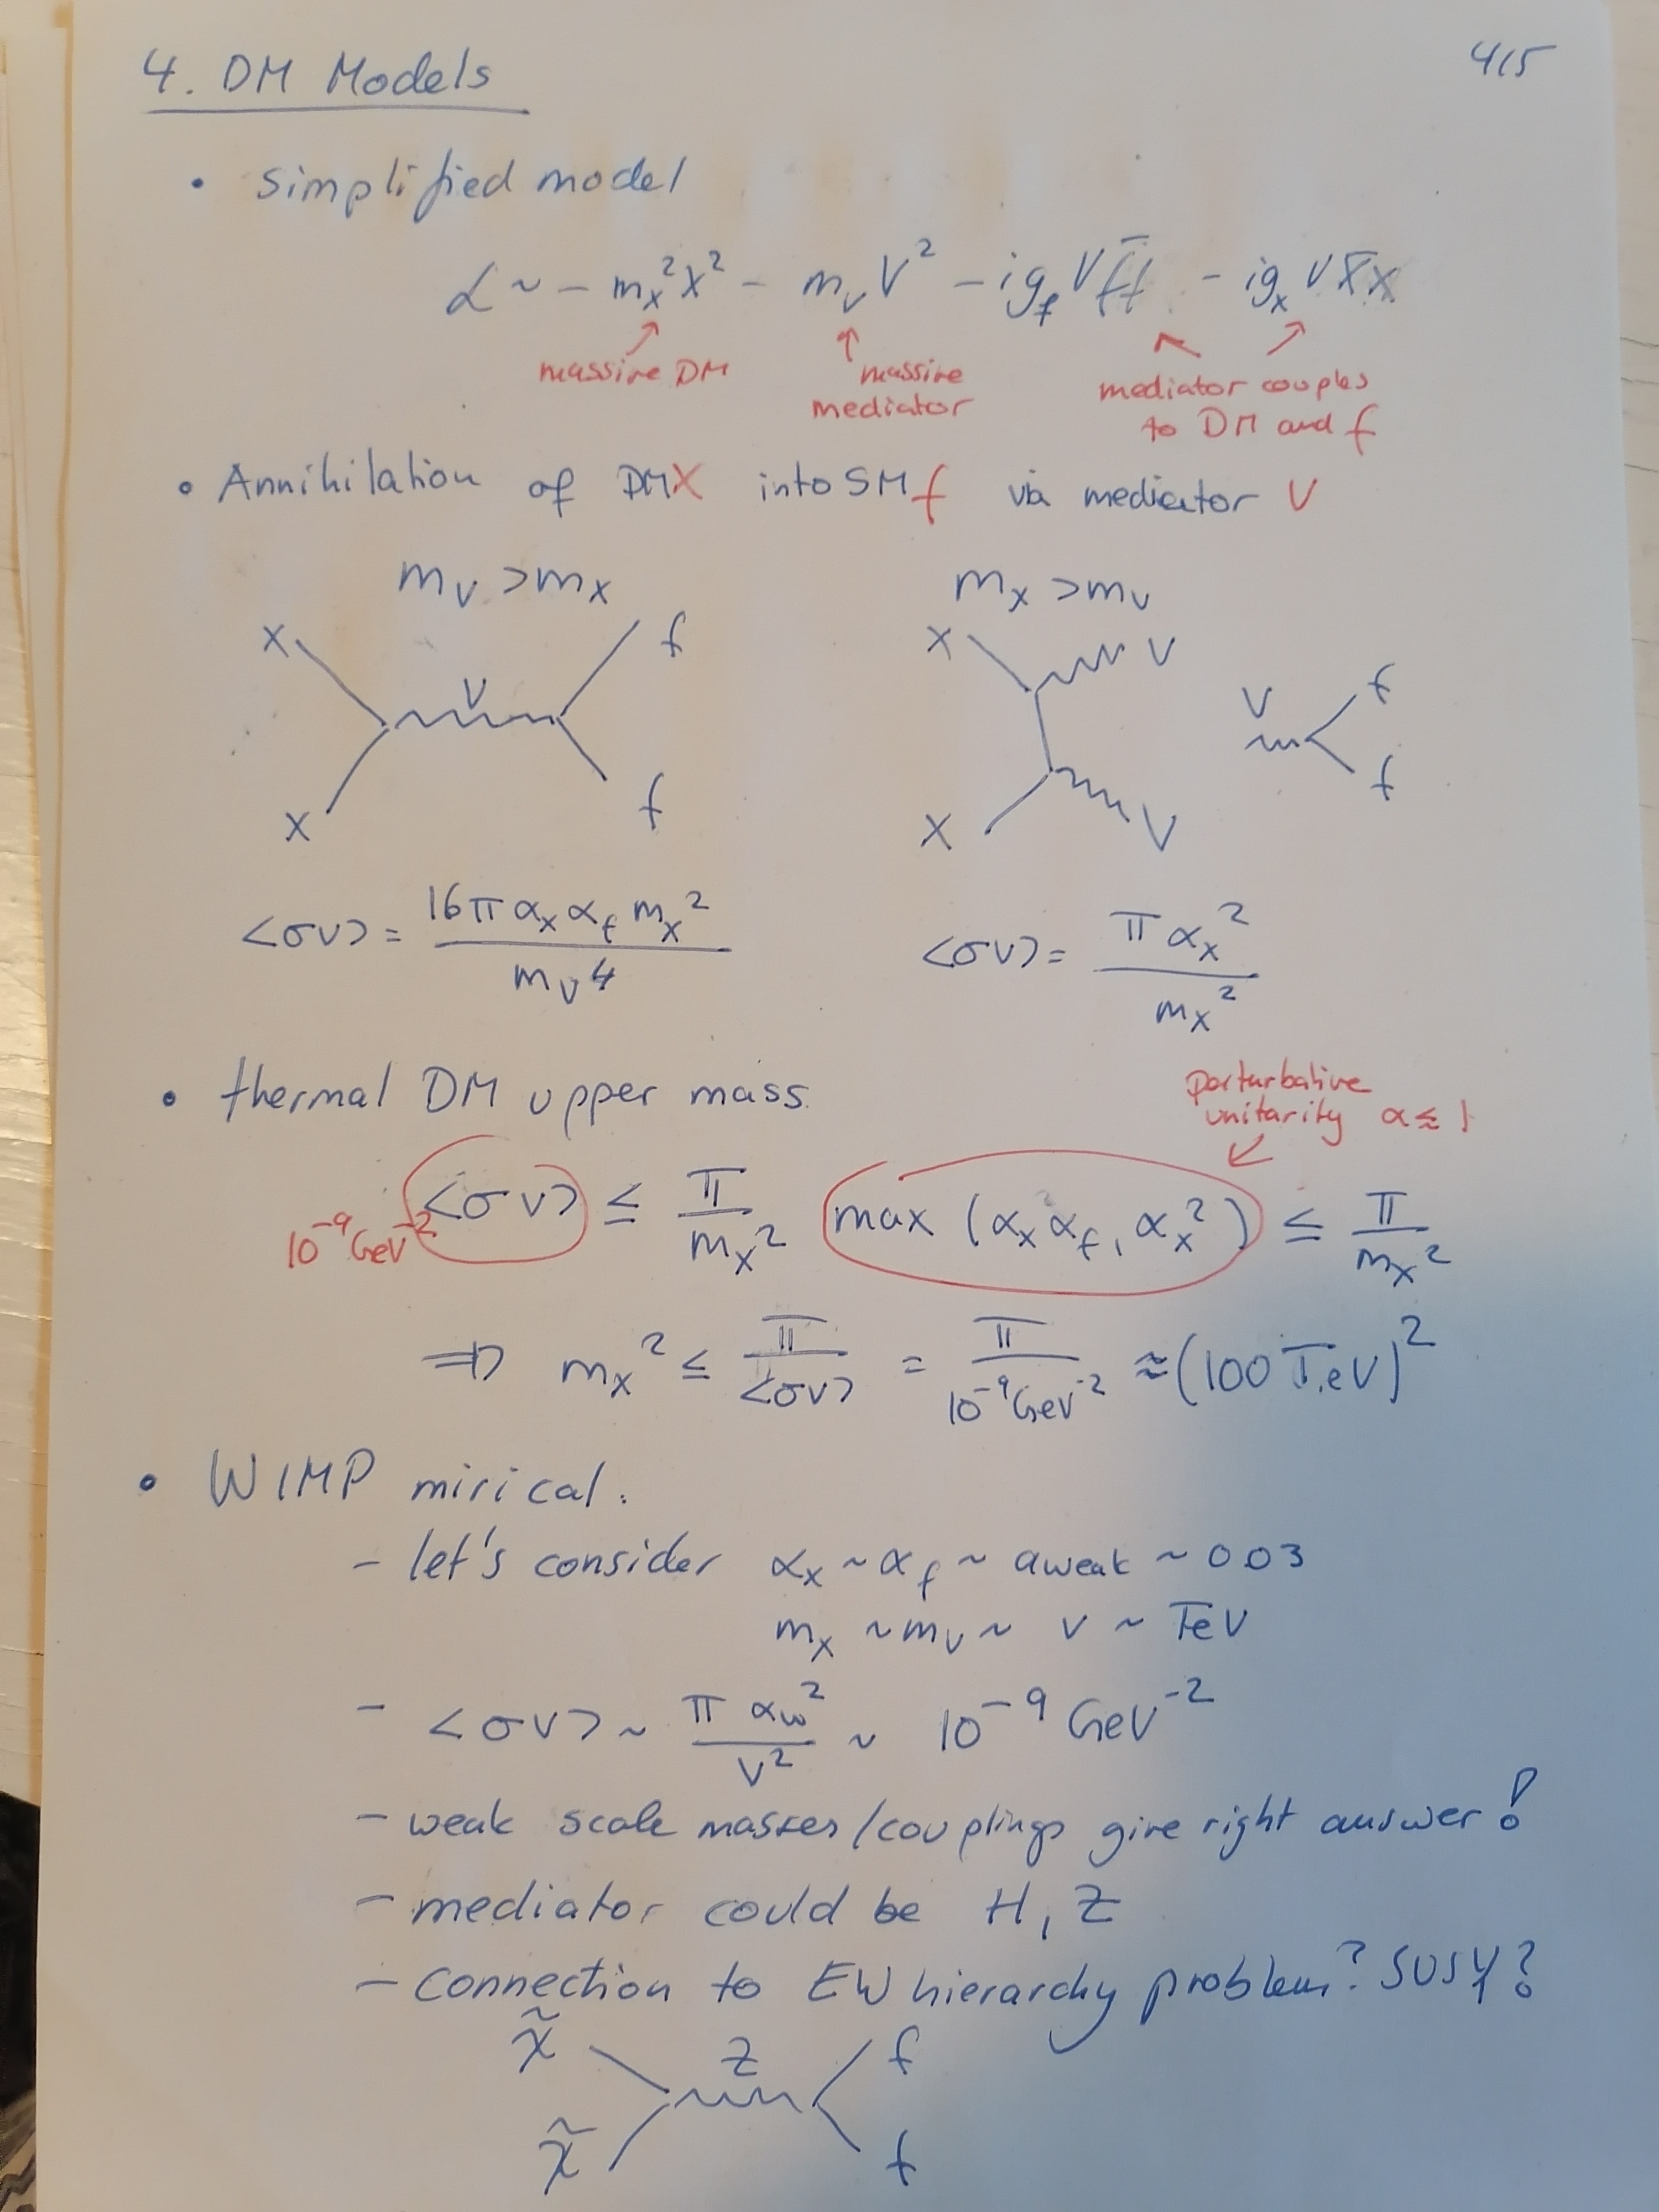 4. DM Models
4/5
• simplified model
ℒ ~ - mₓ²X² - m_V V² - ig_f V f̄f - igₓ V X̄X
massive DM
massive
mediator
mediator couples
to DM and f
• Annihilation of DM X into SM f via mediator V
m_V > mₓ
mₓ > m_V
X f
V
X f
X V
V f
f
X V
<σv> = 16π αₓ α_f mₓ² / m_V⁴
<σv> = π αₓ² / mₓ²
• thermal DM upper mass.
perturbative
unitarity α ≲ 1
10⁻⁹ GeV⁻²
<σv> ≤ π / mₓ² max (αₓ α_f, αₓ²) ≤ π / mₓ²
⇒ mₓ² ≤ π / <σv> = π / 10⁻⁹ GeV⁻² ≈ (100 TeV)²
• WIMP mirical.
- let's consider αₓ ~ α_f ~ αweak ~ 0.03
mₓ ~ m_V ~ v ~ TeV
- <σv> ~ π α_w² / v² ~ 10⁻⁹ GeV⁻²
- weak scale masses/couplings give right answer!
- mediator could be H, Z
- connection to EW hierarchy problem? SUSY?
χ̃ Z f
χ̃ f